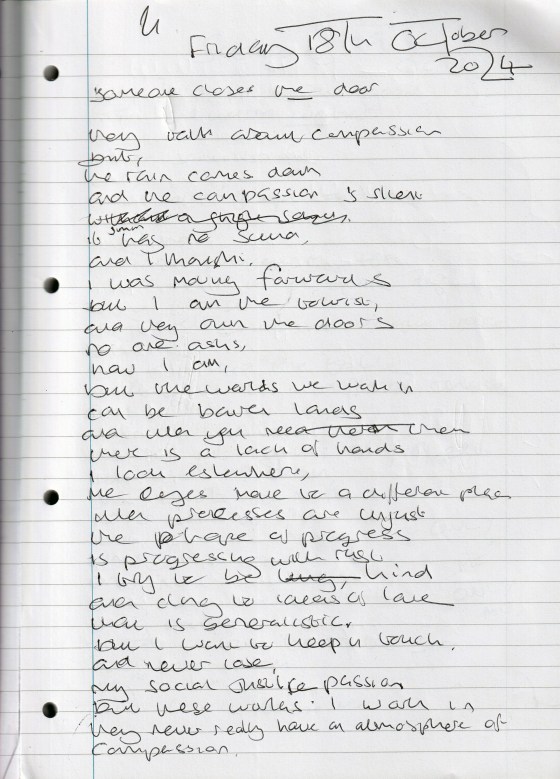 Friday 18th October
2024
someone closes the door
they talk about compassion
but,
the rain comes down
and the compassion is silent
it has no sound,
and I thought.
I was moving forwards
but I am the tourist,
and they own the doors
no one asks,
how I am,
but the worlds we walk in
can be barren lands
and when you need them
there is a lack of hands
I look eslewhere,
the eyes move to a different place
when processes are unjust
the phrase of progress
is progressing with rust
I try to be kind
and cling to ideas of love
that is generalistic.
but I want to keep in touch.
and never lose,
my social justice passion
but these worlds I work in
they never really have an atmosphere of
compassion.